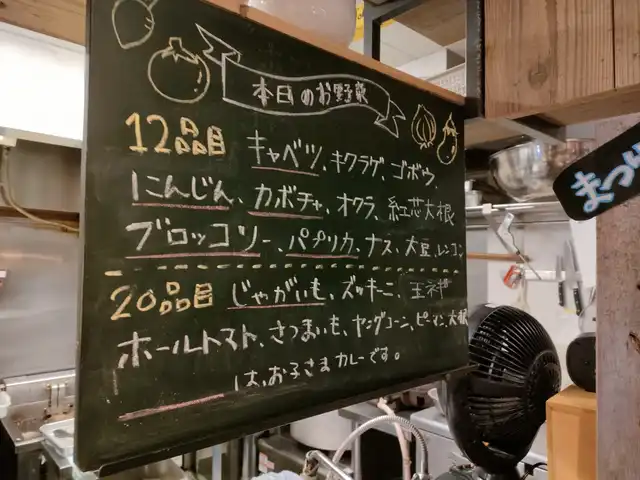 本日のお野菜
12品目 キャベツ、キクラゲ、ゴボウ、
にんじん、カボチャ、オクラ、紅芯大根
ブロッコリー、パプリカ、ナス、大豆、レンコン
20品目 じゃがいも、ズッキーニ、玉ネギ
ホールトマト、さつまいも、ヤングコーン、ピーマン、大根
は、お子さまカレーです。
まつ